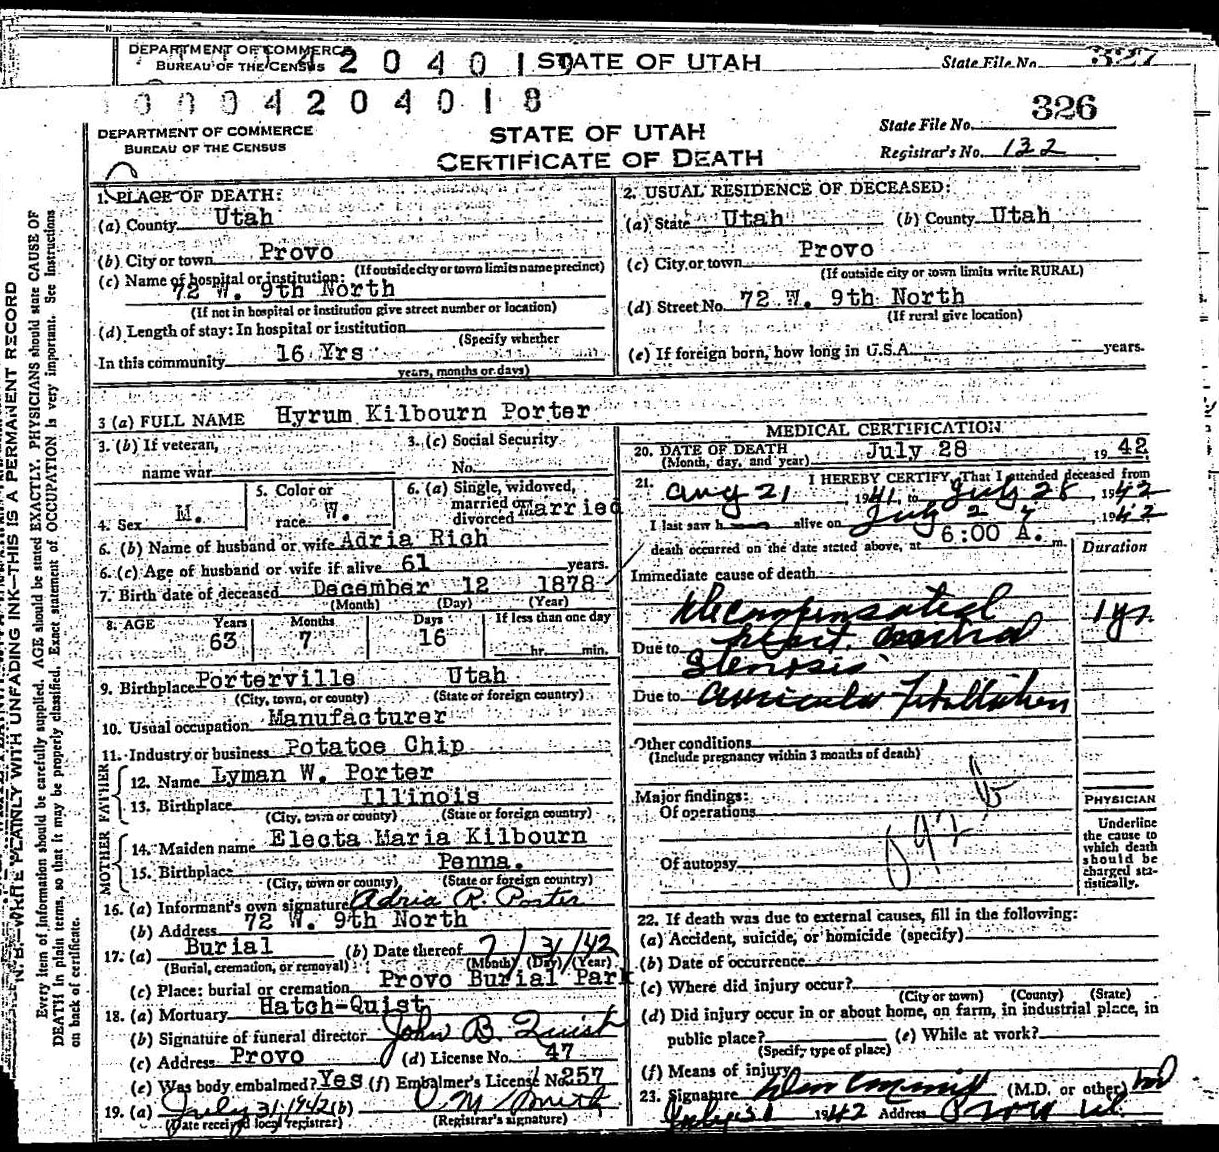 DEPARTMENT OF COMMERCE
BUREAU OF THE CENSUS
2 0 4 0 1 9
STATE OF UTAH
State File No. 327
0 0 0 4 2 0 4 0 1 8
326
DEPARTMENT OF COMMERCE
BUREAU OF THE CENSUS
STATE OF UTAH
CERTIFICATE OF DEATH
State File No.
Registrar's No. 132
N. B.—WRITE PLAINLY WITH UNFADING INK—THIS IS A PERMANENT RECORD
Every item of information should be carefully supplied. AGE should be stated EXACTLY. PHYSICIANS should state CAUSE OF
DEATH in plain terms, so that it may be properly classified. Exact statement of OCCUPATION is very important. See Instructions
on back of certificate.
1. PLACE OF DEATH:
(a) County Utah
(b) City or town Provo
(If outside city or town limits name precinct)
(c) Name of hospital or institution:
72 W. 9th North
(If not in hospital or institution give street number or location)
(d) Length of stay: In hospital or institution
(Specify whether
In this community 16 Yrs
years, months or days)
2. USUAL RESIDENCE OF DECEASED:
(a) State Utah (b) County Utah
(c) City or town Provo
(If outside city or town limits write RURAL)
(d) Street No. 72 W. 9th North
(If rural give location)
(e) If foreign born, how long in U.S.A. years.
3 (a) FULL NAME Hyrum Kilbourn Porter
3. (b) If veteran,
name war
3. (c) Social Security
No.
4. Sex M.
5. Color or
race W.
6. (a) Single, widowed,
married or
divorced Married
6. (b) Name of husband or wife Adria Rich
6. (c) Age of husband or wife if alive 61 years.
7. Birth date of deceased December 12 1878
(Month) (Day) (Year)
8. AGE Years Months Days If less than one day
63 7 16 hr. min.
9. Birthplace Porterville Utah
(City, town, or county) (State or foreign country)
10. Usual occupation Manufacturer
11. Industry or business Potatoe Chip
FATHER
12. Name Lyman W. Porter
13. Birthplace Illinois
(City, town or county) (State or foreign country)
MOTHER
14. Maiden name Electa Maria Kilbourn
15. Birthplace Penna.
(City, town or county) (State or foreign country)
16. (a) Informant's own signature Adria R. Porter
(b) Address 72 W. 9th North
17. (a) Burial (b) Date thereof 7/31/42
(Burial, cremation, or removal) (Month) (Day) (Year)
(c) Place: burial or cremation Provo Burial Park
18. (a) Mortuary Hatch-Quist
(b) Signature of funeral director John B. Quist
(c) Address Provo (d) License No. 47
(e) Was body embalmed? Yes (f) Embalmer's License No. 257
19. (a) July 31, 1942 (b) Smith
(Date received local registrar) (Registrar's signature)
MEDICAL CERTIFICATION
20. DATE OF DEATH July 28 1942
(Month, day, and year)
21. I HEREBY CERTIFY, That I attended deceased from
Aug 21 1941, to July 28, 1942
I last saw h alive on July 27, 1942
death occurred on the date stated above, at 6:00 A. m.
Duration
Immediate cause of death
Decompensated 1 yr.
Due to heart. mitral
Stenosis
Due to auricular Fibrillation
Other conditions
(Include pregnancy within 3 months of death)
Major findings:
Of operations
Of autopsy
PHYSICIAN
Underline
the cause to
which death
should be
charged sta-
tistically.
22. If death was due to external causes, fill in the following:
(a) Accident, suicide, or homicide (specify)
(b) Date of occurrence
(c) Where did injury occur?
(City or town) (County) (State)
(d) Did injury occur in or about home, on farm, in industrial place, in
public place? (e) While at work?
(Specify type of place)
(f) Means of injury
23. Signature (M.D. or other) MD
July 31 1942 Address Provo Ut.